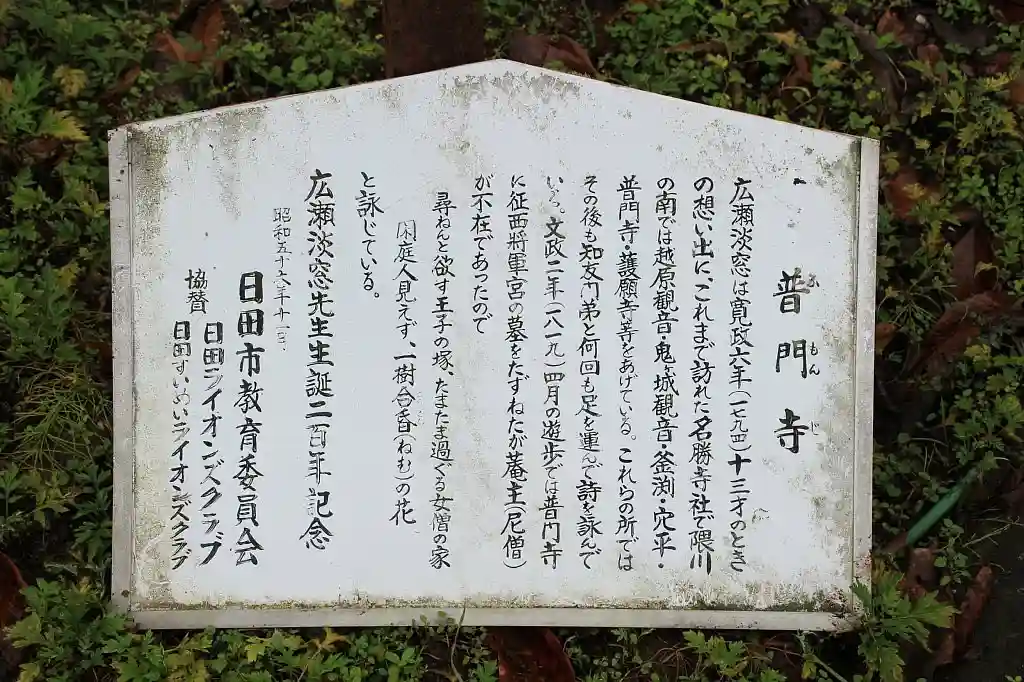 普門寺
ふ もん じ
広瀬淡窓は寛政六年(一七九四)十三才のとき
の想い出に、これまで訪れた名勝寺社で隈川
の南では越原観音・鬼ヶ城観音・釜渕・穴平・
普門寺・護願寺等をあげている。これらの所では
その後も知友門弟と何回も足を運んで詩を詠んで
いる。文政二年(一八一九)四月の遊歩では普門寺
に征西将軍宮の墓をたずねたが菴主(尼僧)
が不在であったので
尋ねんと欲す王子の塚、たまたま過ぐる女僧の家
閑庭人見えず、一樹合昏(ねむ)の花
と詠じている。
広瀬淡窓先生生誕二百年記念
昭和五十六年十一月
日田市教育委員会
協賛 日田ライオンズクラブ
日田すいめいライオンズクラブ